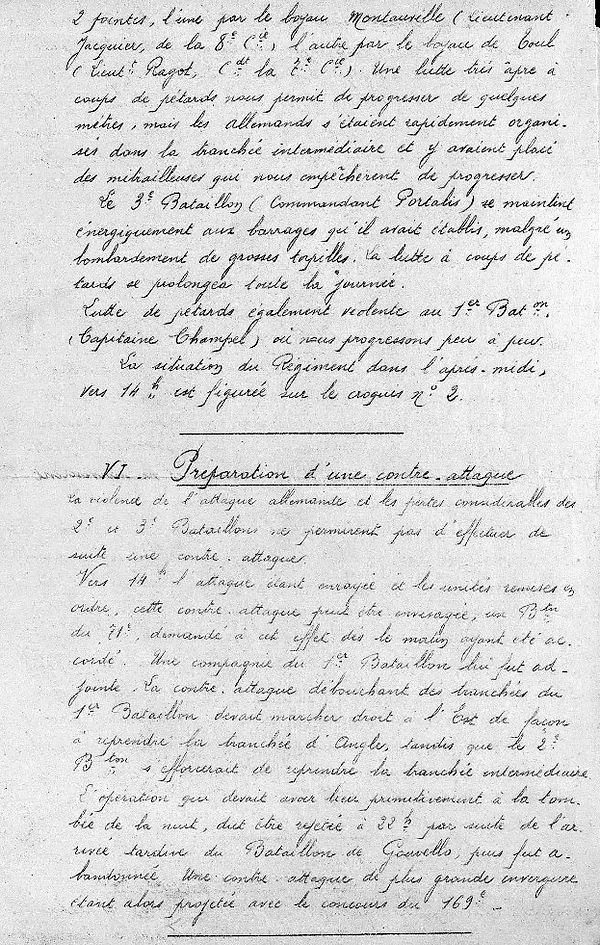 2 pointes, l'une par le boyau Montauville (Lieutenant
Jacquier, de la 8e Cie) l'autre par le boyau de Toul
(Lieutt Ragot, Cdt la 7e Cie). Une lutte très âpre à
coups de pétards nous permit de progresser de quelques
mètres, mais les allemands s'étaient rapidement organi-
ses dans la tranchée intermédiaire et y avaient placé
des mitrailleuses qui nous empêchèrent de progresser.
Le 3e Bataillon (Commandant Portalis) se maintint
énergiquement aux barrages qu'il avait établis, malgré un
bombardement de grosses torpilles. La lutte à coups de pé-
tards se prolongea toute la journée.
Lutte de pétards également violente au 1er Baton.
(Capitaine Champel) où nous progressons peu à peu.
La situation du Régiment dans l'après-midi,
vers 14h est figurée sur le croquis no 2.
VI - Préparation d'une contre-attaque
La violence de l'attaque allemande et les pertes considérables des
2e et 3e Bataillons ne permirent pas d'effectuer de
suite une contre-attaque.
Vers 14h l'attaque étant enrayée et les unités remises en
ordre, cette contre-attaque peut être envisagée, un Bton
du 71e, demandé à cet effet dès le matin ayant été ac-
cordé. Une compagnie du 1er Bataillon lui fut ad-
jointe. La contre-attaque débouchant des tranchées du
1er Bataillon devait marcher droit à l'Est de façon
à reprendre la tranchée d'Angle, tandis que le 2e
Bton s'efforcerait de reprendre la tranchée intermédiaire
L'opération qui devait avoir lieu primitivement à la tom-
bée de la nuit, dut être rejetée à 22h par suite de l'ar-
rivée tardive du Bataillon de Gouvello, puis fut a-
bandonnée. Une contre-attaque de plus grande envergure
étant alors projetée avec le concours du 169e -